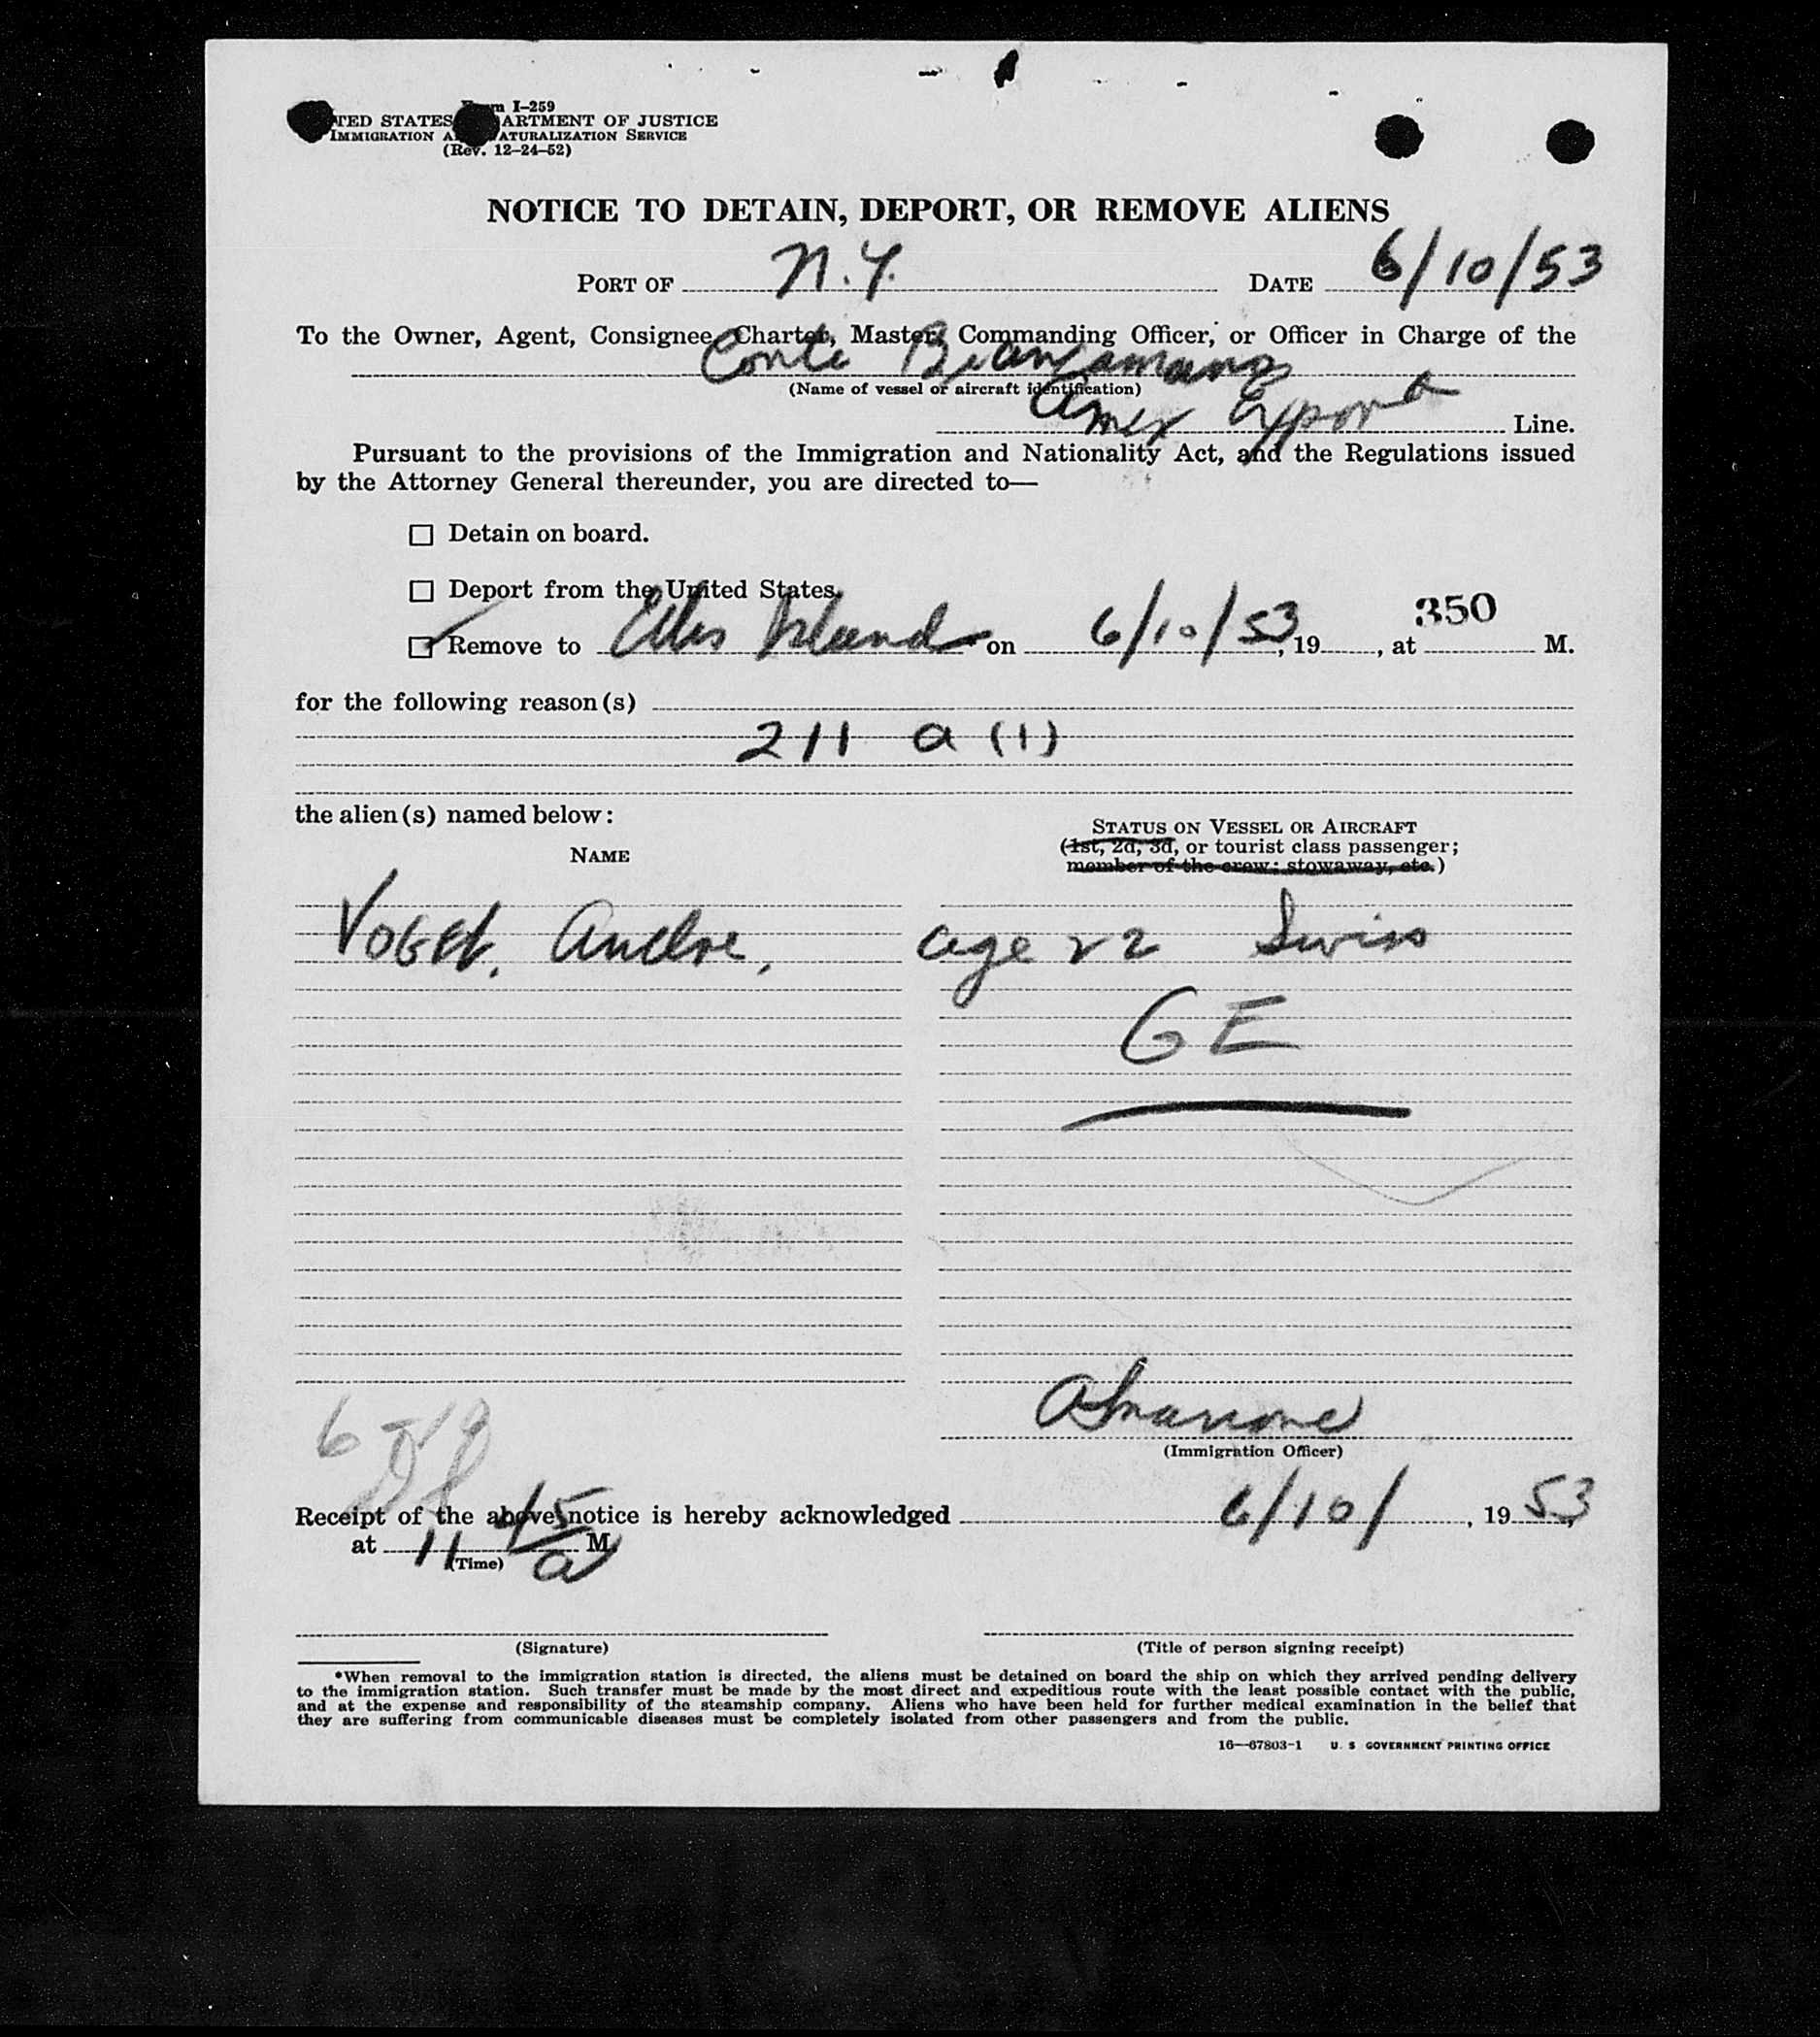 Form I-259
UNITED STATES DEPARTMENT OF JUSTICE
IMMIGRATION AND NATURALIZATION SERVICE
(Rev. 12-24-52)
NOTICE TO DETAIN, DEPORT, OR REMOVE ALIENS
PORT OF N.Y. DATE 6/10/53
To the Owner, Agent, Consignee, Charter, Master, Commanding Officer, or Officer in Charge of the
Conte Biancamano
(Name of vessel or aircraft identification)
Amex Export Line.
Pursuant to the provisions of the Immigration and Nationality Act, and the Regulations issued
by the Attorney General thereunder, you are directed to—
☐ Detain on board.
☐ Deport from the United States.
350
☐ Remove to Ellis Island on 6/10/53, 19, at M.
for the following reason(s)
211 a (1)
the alien(s) named below:
STATUS ON VESSEL OR AIRCRAFT
(1st, 2d, 3d, or tourist class passenger;
NAME
member of the crew; stowaway, etc.)
Andre, age 22 Swiss
GE
(Immigration Officer)
Receipt of the above notice is hereby acknowledged 6/10/, 1953,
at 11 45/a M.
(Time)
(Signature) (Title of person signing receipt)
*When removal to the immigration station is directed, the aliens must be detained on board the ship on which they arrived pending delivery
to the immigration station. Such transfer must be made by the most direct and expeditious route with the least possible contact with the public,
and at the expense and responsibility of the steamship company. Aliens who have been held for further medical examination in the belief that
they are suffering from communicable diseases must be completely isolated from other passengers and from the public.
16—67803-1 U. S GOVERNMENT PRINTING OFFICE